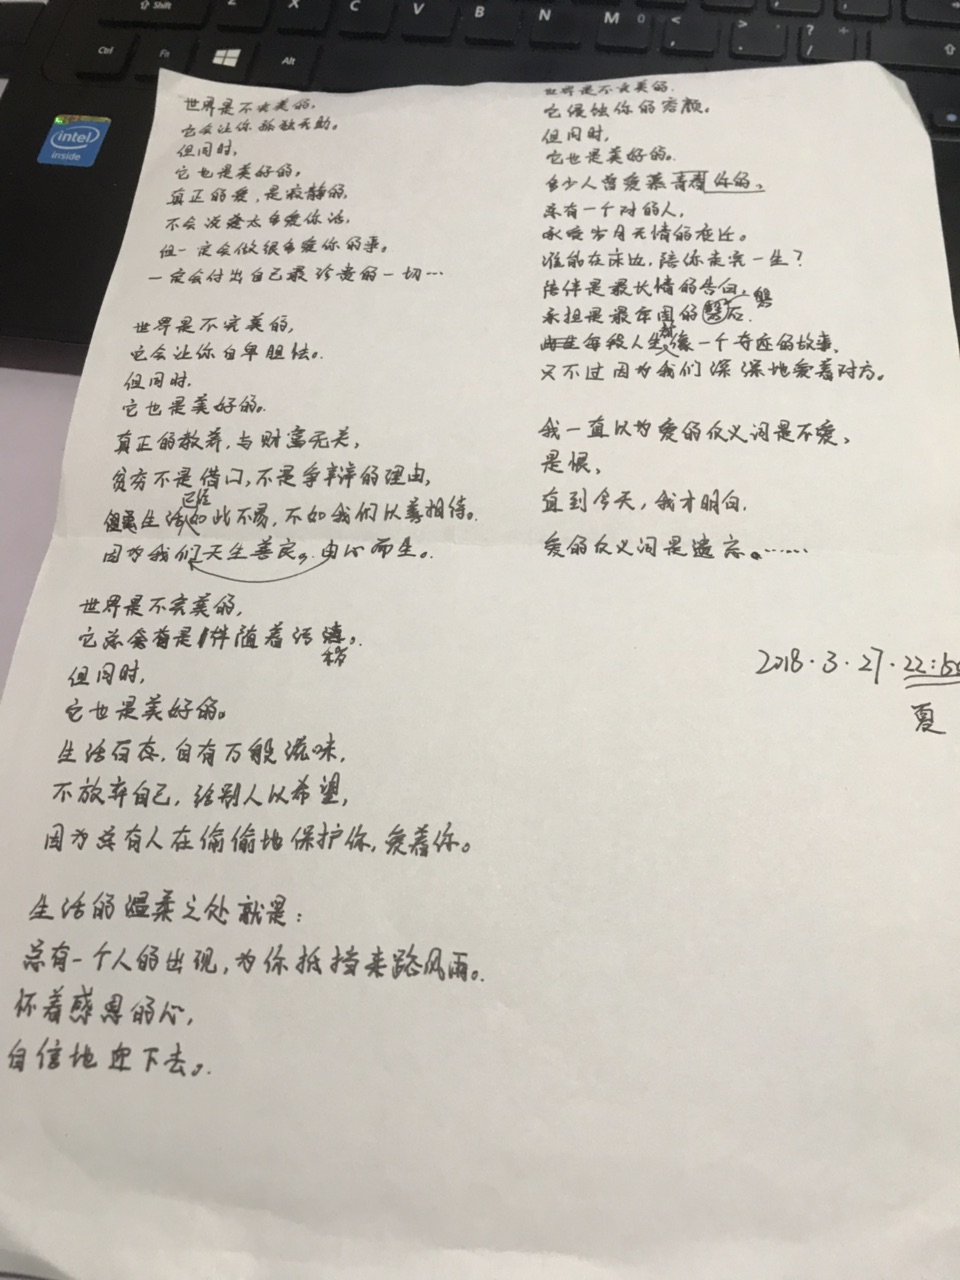 Shift
Z
X
C
V
B
N
M
Ctrl
Fn
Alt
intel
inside
世界是不完美的,
它会让你孤独无助。
但同时,
它也是美好的,
真正的爱,是寂静的,
不会说太多爱你话,
但一定会做很多爱你的事。
一定会付出自己最珍贵的一切…
世界是不完美的,
它会让你自卑胆怯。
但同时,
它也是美好的。
真正的教养,与财富无关,
贫穷不是借口,不是争辩的理由,
生活已经如此不易,不如我们以善相待。
因为我们天生善良,由心而生。
世界是不完美的,
它总会伴随着污
但同时,
它也是美好的。
生活百态,自有万般滋味,
不放弃自己,给别人以希望,
因为总有人在偷偷地保护你,爱着你。
生活的温柔之处就是:
总有一个人的出现,为你抵挡来路风雨。
怀着感恩的心,
自信地走下去。
世界是不完美的.
它侵蚀你的容颜。
但同时,
它也是美好的。
多少人曾爱慕青春你的。
总有一个对的人,
承受岁月无情的变迁。
谁能在床边,陪你走完一生?
陪伴是最长情的告白,
承担是最牢固的磐石.
每段人生都像一个奇迹的故事,
只不过因为我们深深地爱着对方。
我一直以为爱的反义词是不爱,
是恨,
直到今天,我才明白,
爱的反义词是遗忘。……
2018·3·27·22:
夏